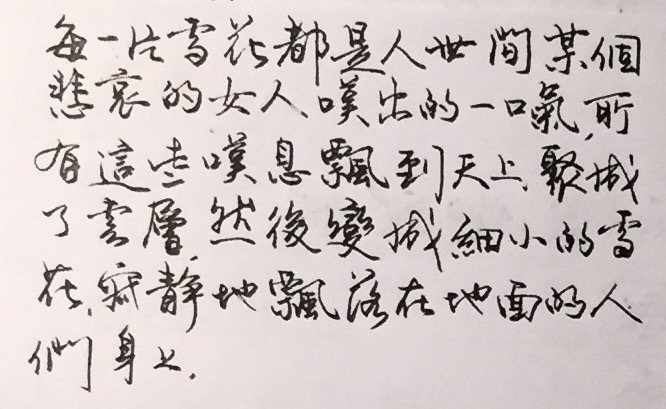 每一片雪花都是人世間某個
悲哀的女人嘆出的一口氣,所
有這些嘆息飄到天上,聚城
了雲層,然後變城細小的雪
花,寂靜地飄落在地面的人
們身上.